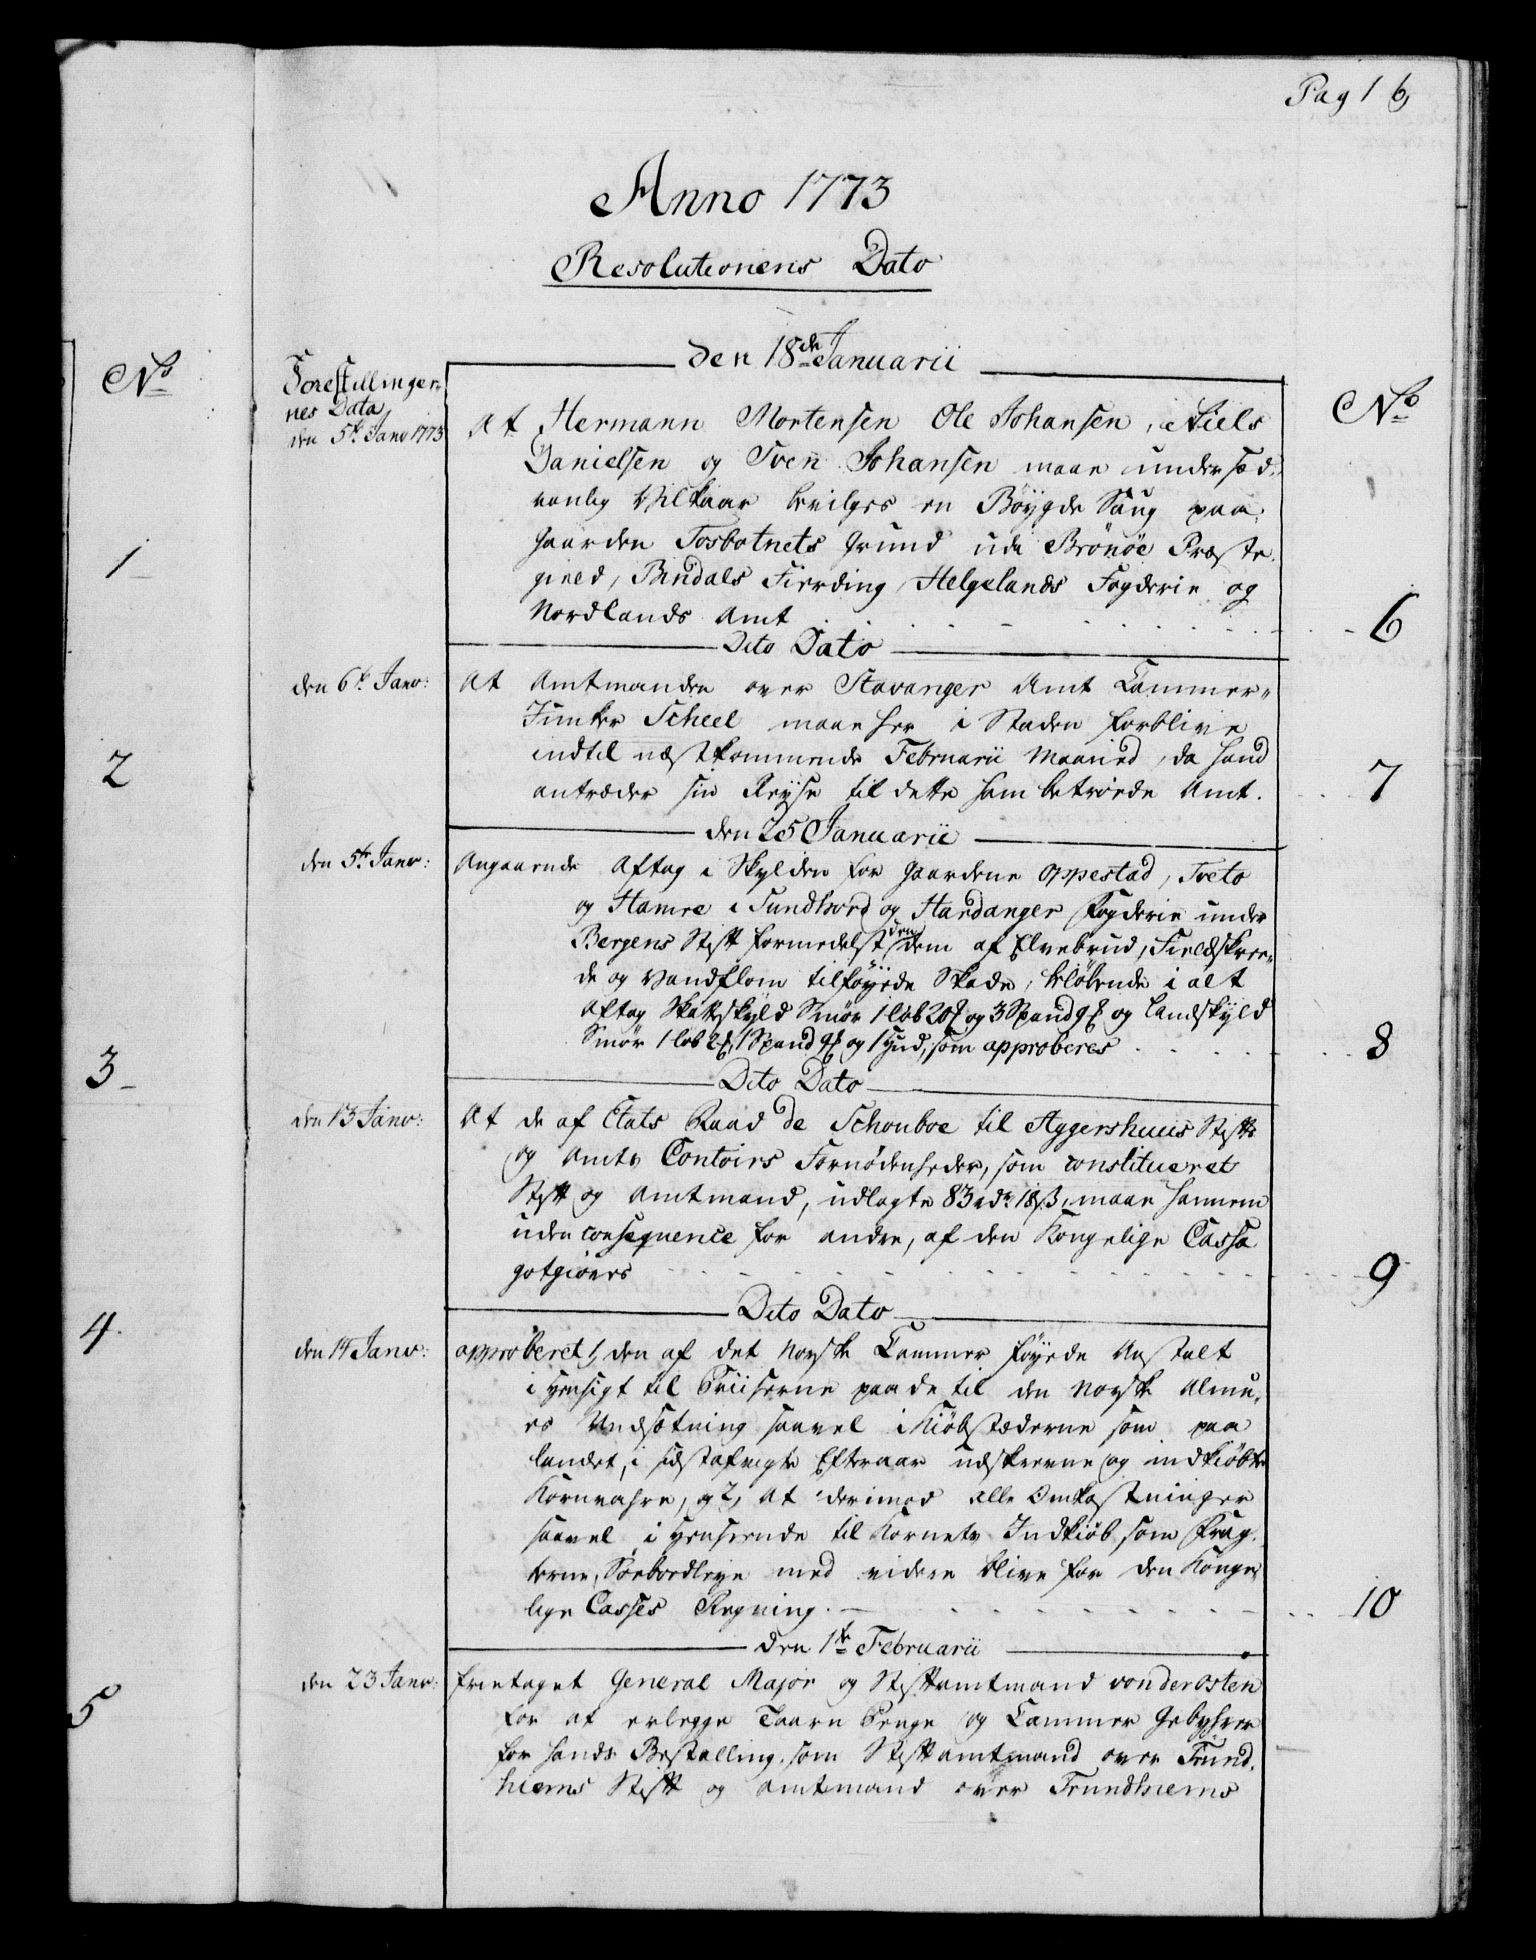 Pag 1 b
Anno 1773
Resolutionens Dato
den 18de Januarii
No
Forestillinger-
nes Data
den 5te Janv 1773
No
At Hermann Mortensen Ole Johansen, Niels
Danielsen og Sven Johansen maae under sæd-
vanlig Vilkaar bevilges en Böygde Saug paa
Gaarden Tosbotnets Grund udi Brönöe Præste-
gield, Bindals Fierding, Helgelands Fogderie og
Nordlands Amt
1
6
Dito Dato
den 6te Janv:
At Amtmanden over Stavanger Amt Cammer-
Junker Scheel maae her i Staden forblive
indtil næstkommende Februarii Maaned, da hand
antræder sin Reyse til dette ham betroede Amt.
2
7
den 25 Januarii
den 5te Janv:
Angaaende Aftag i Skylden for Gaardene Oppestad, Tveto
og Hamre i Sundhord og Hardanger Fogderie under
Bergens Stift formedelst den dem af Elvebrud, Fieldskree-
de og Vandflom tilföyede Skade, belöbende i alt
Aftag Skatteskyld Smör 1 löb 20 og 3 Spand 9 og Landskyld
Smör 1 löb 2, 1 Spand 9 og 1 Hud, som approberes
3
8
Dito Dato
den 13 Janv:
At de af Etats Raad de Schouboe til Aggershuus Stifts
og Amts Contoirs Fornödenheder, som constitueret
Stift og Amtmand, udlagte 83 rdr 18 s, maae hannem
uden consequence for andre, af den Kongelige Cassa
gotgiöres
9
Dito Dato
4
den 14 Janv:
approberet 1, den af det Norske Cammer föyede Anstalt
i Hensigt til Priiserne paa de til den Norske Almu-
es Undsætning saavel i Kiöbstæderne som paa
Landet, i sidstafvigte Efteraar udskrevne og indkiöbte
Kornvahre, og 2, at derimod alle Omkostninger
saavel i Henseende til Kornets Indkiöb, som Frag-
terne, Söebordleye med videre blive for den Konge-
lige Casses Regning.
10
den 1te Februarii
den 23 Janv:
5
fritaget General Major og Stiftamtmand von der Osten
for at erlegge Taarn Penge og Cammer Gebyhrer
for hands Bestalling som Stiftamtmand over Trund-
hiems Stift og Amtmand over Trundhiems